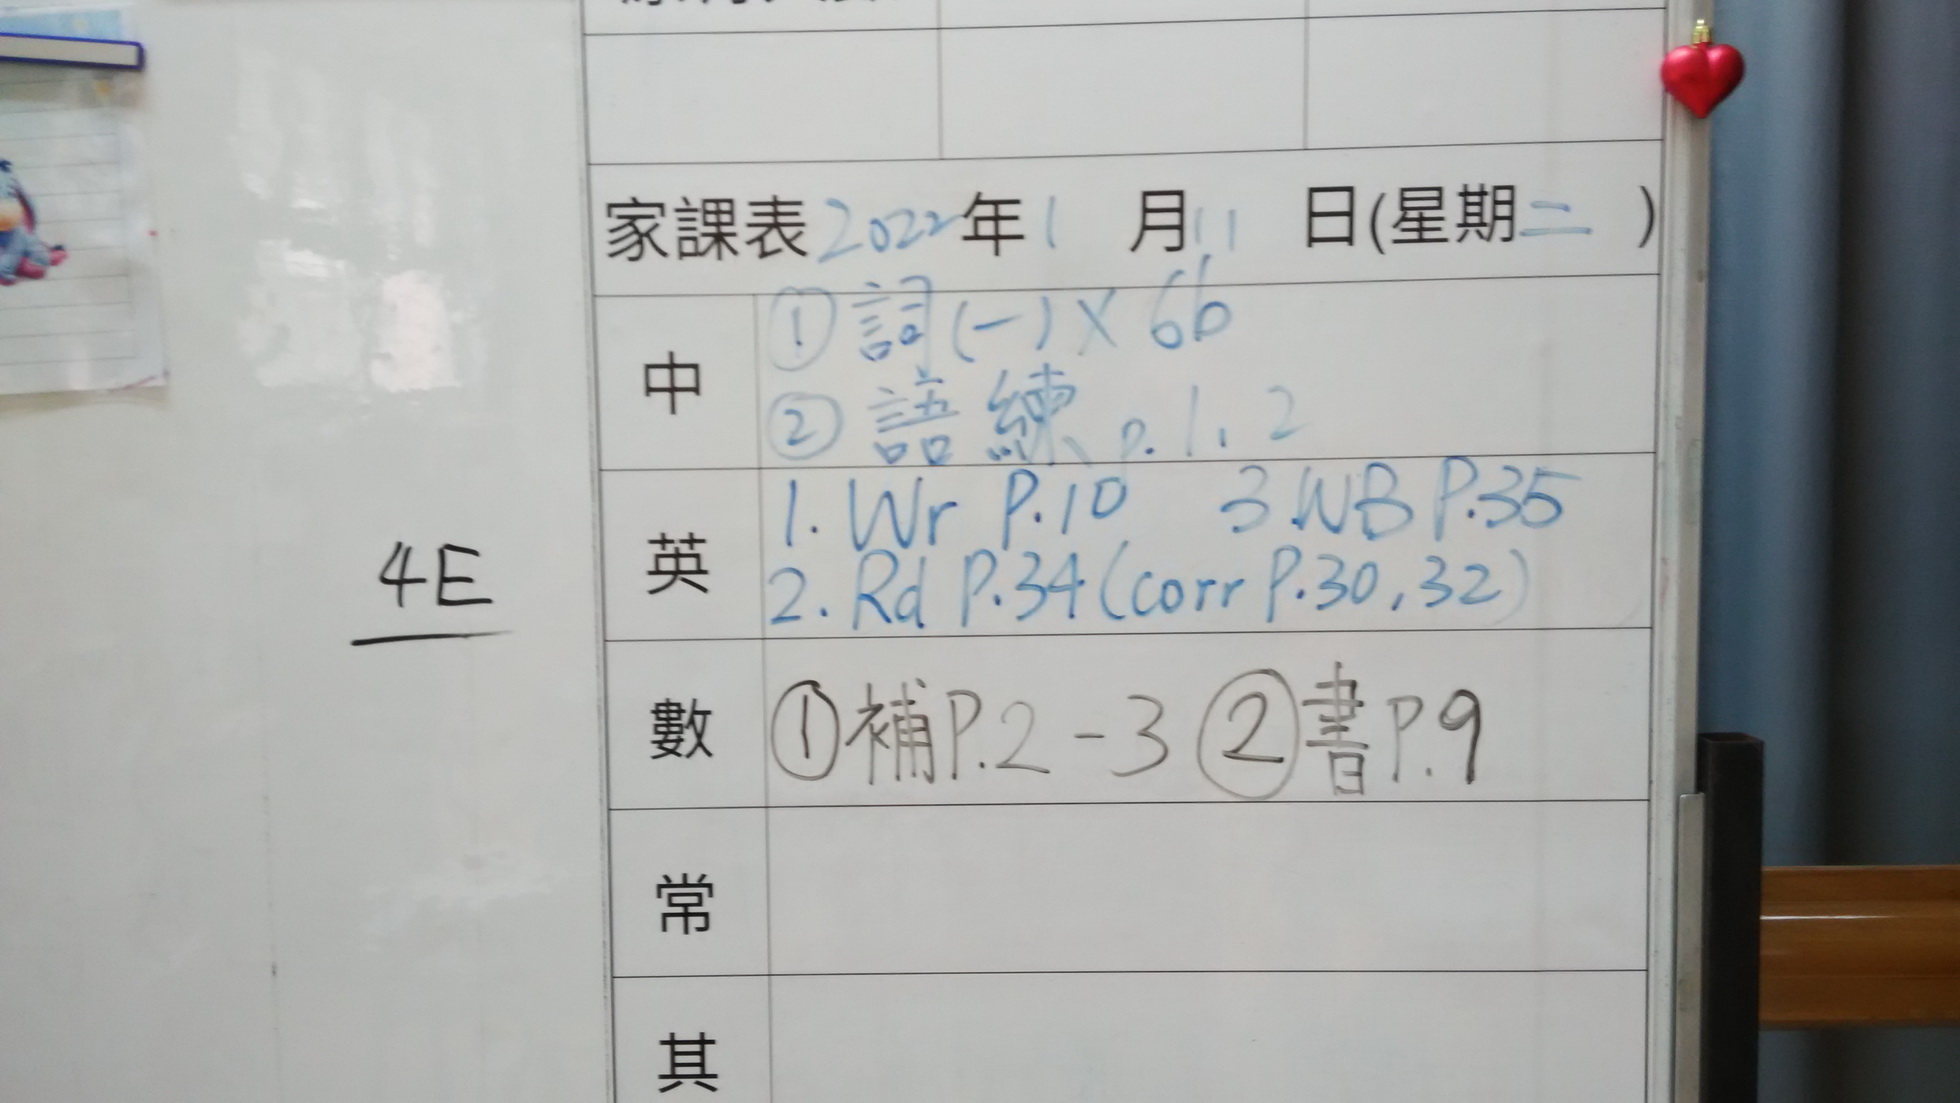 家課表2022年1月11日(星期二)
中
①詞(一)×6b
②語練p.1,2
英
1. Wr P.10 3.WB P.35
2. Rd P.34(corr P.30,32)
數
①補P.2-3 ②書P.9
常
其
4E